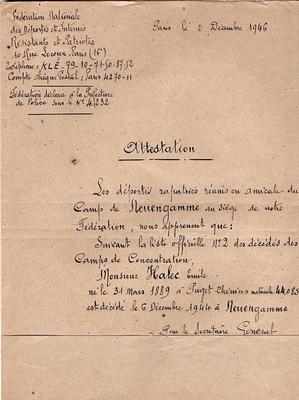 Fédération Nationale
des Déportés et Internés
Résistants et Patriotes
10 Rue Leroux Paris (16e)
Téléphone: KLÉ-79-10-71-50-87.52
Compte Chèque Postal: Paris 4270-11
Fédération déclarée à la Préfecture
de Police sous le No 4/232
Paris le 2 Décembre 1946
Attestation
Les déportés rapatriés réunis en amicale du
Camp de Neuengamme au siège de notre
Fédération, nous apprennent que:
Suivant la liste officielle No 2 des décédés des
Camps de Concentration,
Monsieur Halec Émile
né le 31 Mars 1889 à Puget Théniers matricule 44.083
est décédé le 6 Décembre 1944 à Neuengamme
Pour le Secrétaire Général